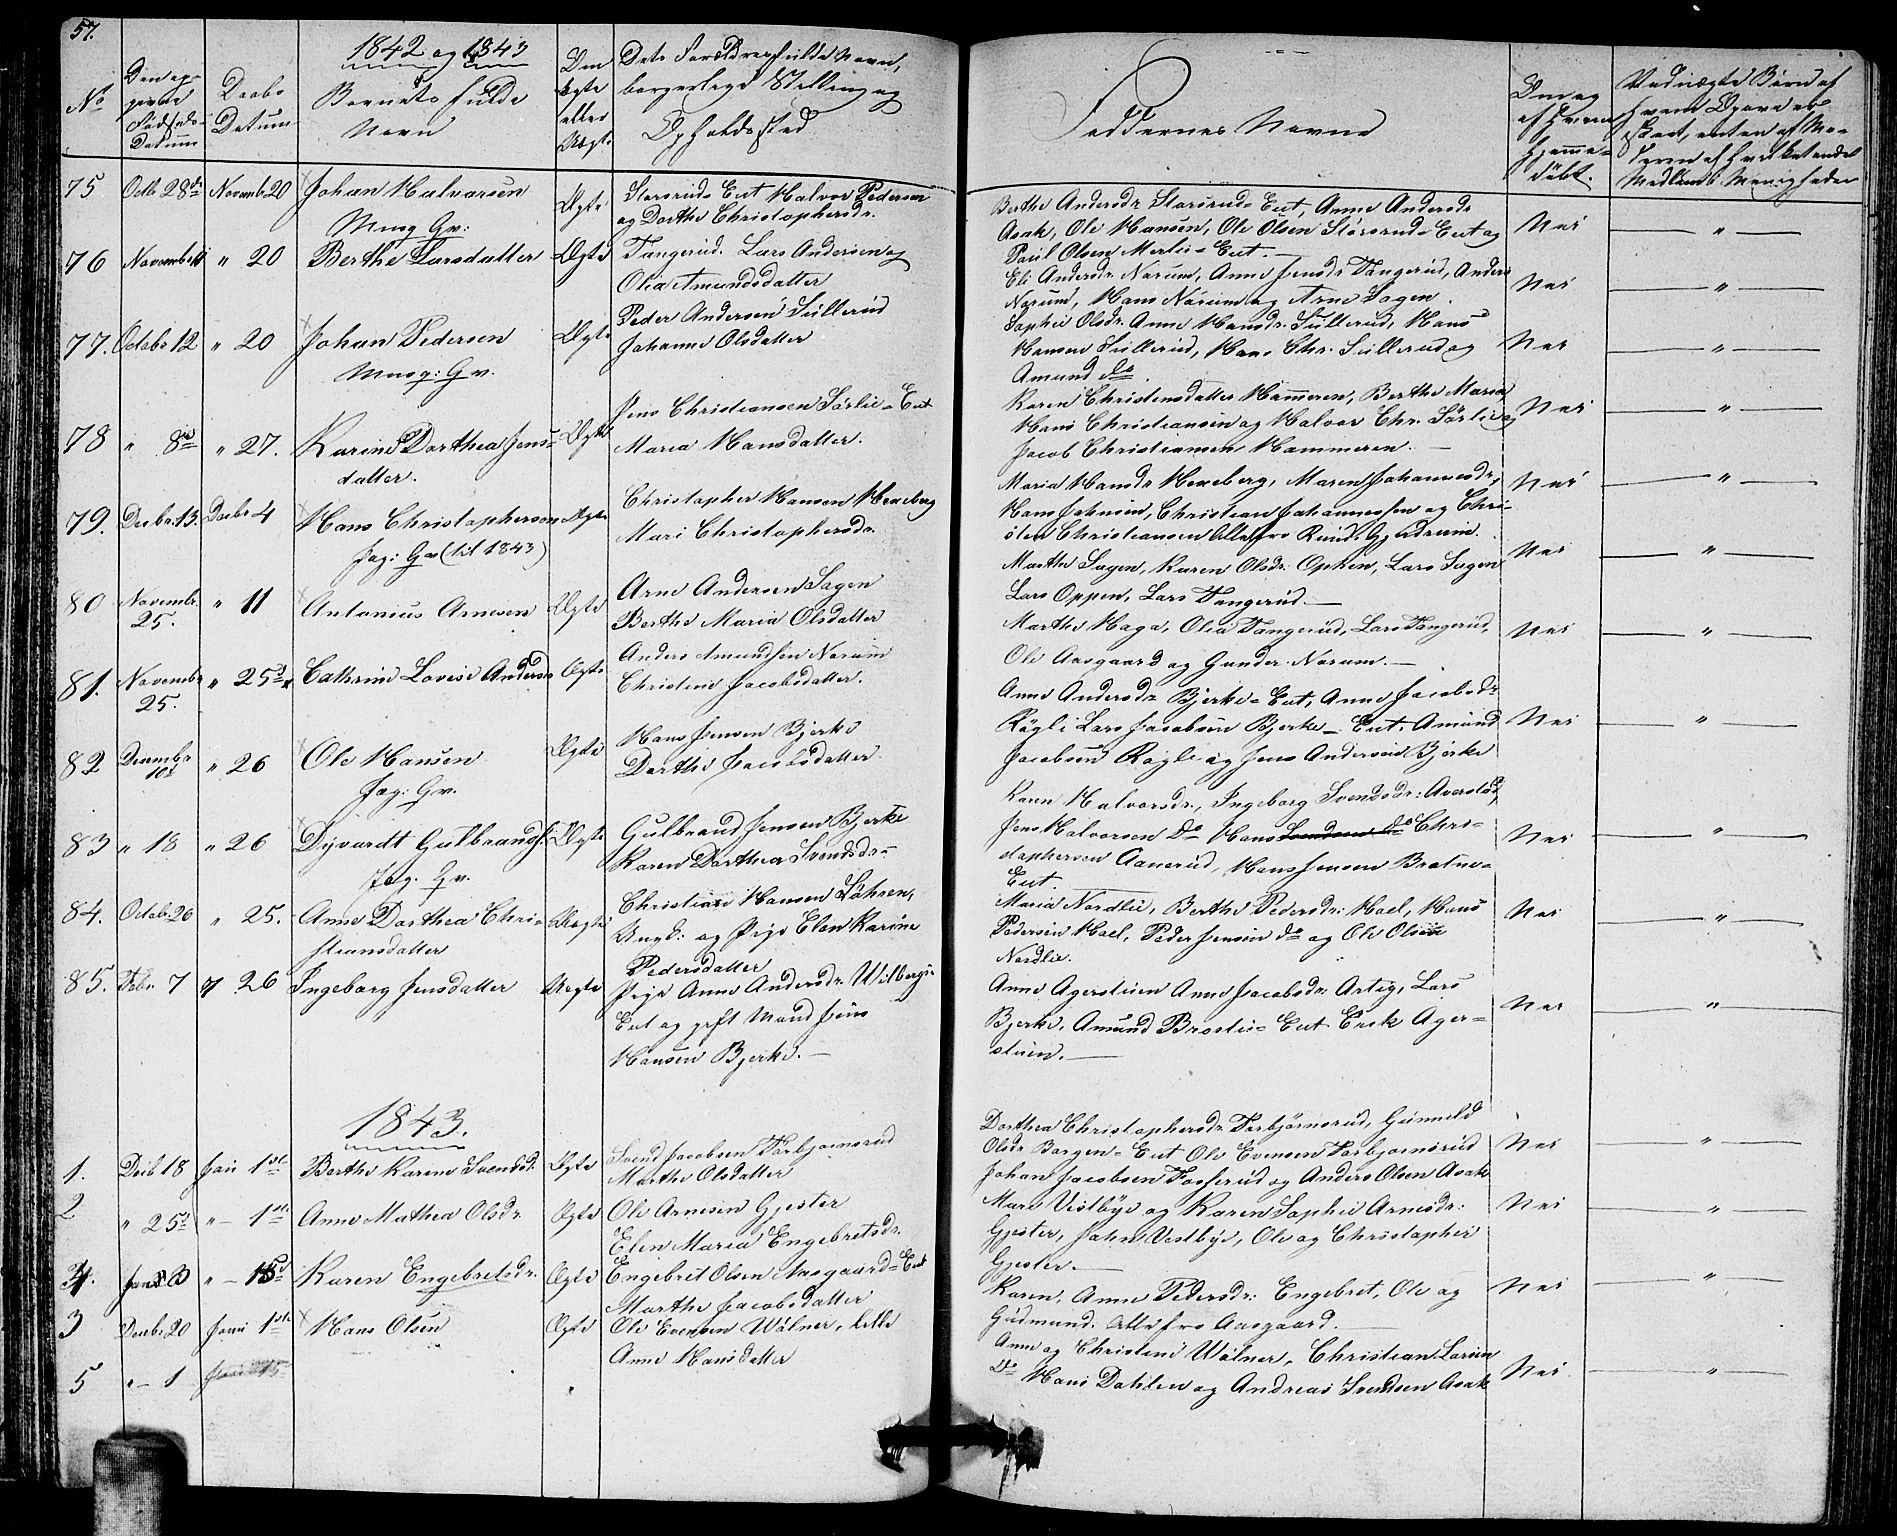 57.
1842 og 1843
No
Den op-
givne
Fødsels-
Datum
Daabs
Datum
Barnets fulde
Navn
Om
Ægte
eller
Uægte
Dets Forældres fulde Navn,
borgerlige Stilling og
Opholdssted
Faddernes Navne
Om og
af Hvem
hjemme-
døbt.
75 Octb 28de Novemb. 20 Johan Halvorsen Ægte Storsrud-Eiet Halvor Pedersen
Musg Gv: og Dorthe Christophersdr.
Berthe Andersdr Storsrud-Eiet, Anne Andersdr
Asak, Ole Hansen, Ole Olsen Storsrud-Eiet og Nei "
Paul Olsen Merlie-Eiet.
76 Novemb " 20 Berthe Larsdatter Ægte Tangerud. Lars Andersen og
Olia Amundsdatter
Eli Andersdr Norum, Anne Jensdr Tangerud, Anders Nei "
Norum, Hans Norum og Arne Sagen.
77. Octobr 12 " 20 Johan Pedersen Ægte Peder Andersen Sullerud
Musg: Gv. Johanne Olsdatter
Sophie Olsdr. Anne Hansdr. Sullerud, Hans
Hansen Sullerud, Hans Chr. Sullerud og Nei "
Amund do
78 " 8de " 27. Karine Dorthea Jens- Ægte Jens Christiansen Sørlie-Eiet
datter. Maria Hansdatter.
Karen Christensdatter Hammeren, Berthe Maria,
Hans Christiansen og Halvor Chr. Sørlie og Nei "
Jacob Christiansen Hammeren.
79. Decbr. 13. Decbr 4 Hans Christophersen Ægte Christopher Hansen Hexeberg
Jag: Gv (til 1843) Mari Christophersdr.
Maria Hansdr Hexeberg, Maren Johannesdr, Nei "
Hans Johnsen, Christian Johannessen og Chri-
sten Christiansen Alle fra Rud. Gjerdrum.
80 Novembr. 25. " 11 Antonius Arnesen Ægte Arne Andersen Sagen
Berthe Maria Olsdatter
Marthe Sagen, Karen Olsdr. Opken, Lars Sagen Nei "
Lars Oppen, Lars Tangerud.
81. Novembr 25. " 25de Cathrine Lovise Anders Ægte Anders Amundsen Norum
Christine Jacobsdatter.
Marthe Haga, Olia Tangerud, Lars Tangerud, Nei "
Ole Aasgaard og Gunder Norum.
82 Decembr 10de " 26 Ole Hansen Ægte Hans Jensen Bjerke
Jag: Gv. Dorthe Jacobsdatter
Anne Andersdr Bjerke-Eiet, Anne Jacobsdr
Røgli Lars Jacobsen Bjerke-Eiet, Amund Nei "
Jacobsen Røgli og Jens Andersen Bjerke
83 " 18 " 26 Dyvardt Gulbrands. Ægte Gulbrand Jensen Bjerke
Jag. Gv. Karen Dorthea Svendsdr
Karen Halvorsdr., Ingeborg Svendsdr: Averstad,
Jens Halvorsen Do Hans Svendsen do Chri- Nei "
stophersen Aanerud, Hans Jensen Bratne-
Eiet.
84. Octobr. 26 " 25. Anne Dorthea Chri- Uægte Christian Hansen Løhren,
stiansdatter Ungk: og Pige Elen Karine
Pedersdatter
Maria Nordlie, Berthe Pedersdr: Hoel, Hans Nei "
Pedersen Hoel, Peder Jensen do og Ole Olsen
Nordlie.
85. Debr. 7 " 26 Ingeborg Jensdatter Uægte Pige Anne Andersdr. Wilberg-
Eiet og gift Mand Jens
Hansen Bjerke.
Anne Agerstuen Anne Jacobsdr: Arteg, Lars
Bjerke, Amund Brostu-Eiet Erik Ager- Nei "
stuen.
1843.
1. Decb 18 Jan 1ste Berthe Karine Svendsd. Ægte Svend Jacobsen Torbjørnsrud
Marthe Olsdatter
Dorthea Christophersdr Torbjørnsrud, Gunnild
Olsdr Borgen-Eiet Ole Evensen Torbjørnsrud Nei "
Johan Jacobsen Fosserud og Anders Olsen Asak
2 " 25de " - 1ste Anne Mathea Olsdr. Ægte Ole Arnesen Gjester
Elen Maria Engebretsdr.
Mari Vestbye og Karen Sophie Arnesdr: Nei "
Gjester, John Vestbye, Ole og Christopher
Gjester.
4. Jan " - 15de Karen Engebretsdr. Ægte Engebret Olsen Aasgaard-Eiet
Marthe Jacobsdatter
Karen, Anne Pedersdr: Engebret, Ole og Nei "
Gudmund. Alle fra Aasgaard.
3 Decbr 20 Jan 1ste Hans Olsen Ægte Ole Evensen Wølner, lille
Anne Hansdatter
Anne og Christine Wølner, Christian Larsen
Do Hans Dahlen og Andreas Svendsen Asak Nei "
5 " - 1